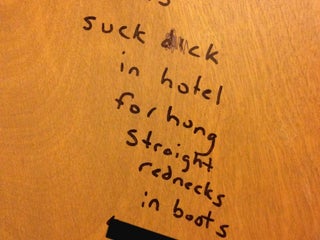 suck dick
in hotel
for hung
straight
rednecks
in boots